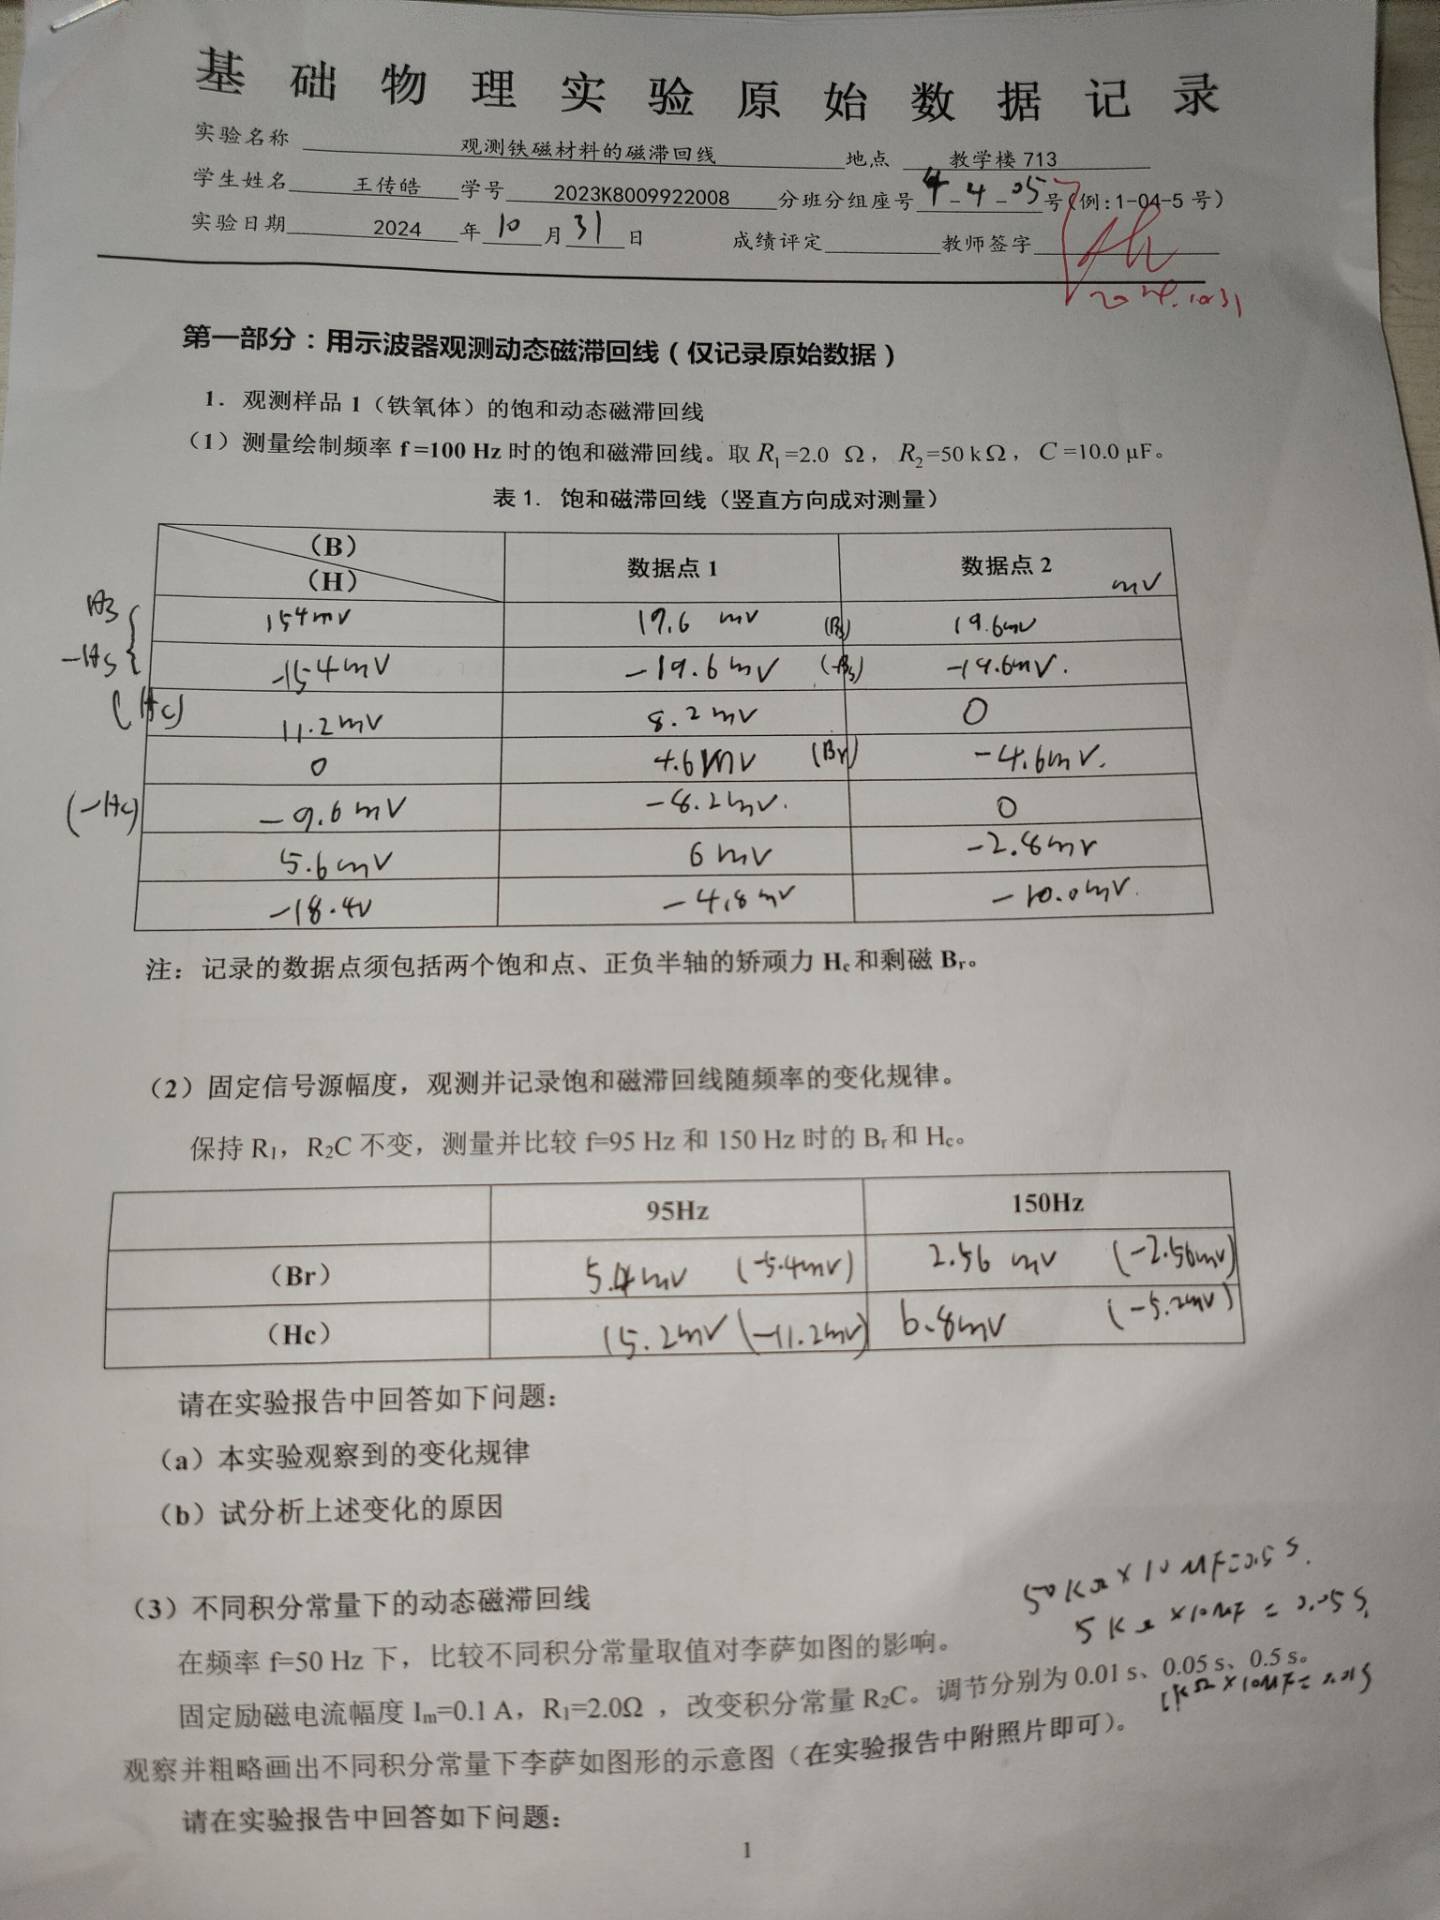 基础物理实验原始数据记录
实验名称 观测铁磁材料的磁滞回线 地点 教学楼 713
学生姓名 王传皓 学号 2023K8009922008 分班分组座号 4-4-05 号(例:1-04-5 号)
实验日期 2024 年 10 月 31 日 成绩评定 教师签字
2024.10.31
第一部分：用示波器观测动态磁滞回线（仅记录原始数据）
1. 观测样品 1（铁氧体）的饱和动态磁滞回线
（1）测量绘制频率 f =100 Hz 时的饱和磁滞回线。取 R1=2.0 Ω，R2=50 kΩ，C =10.0 μF。
表 1. 饱和磁滞回线（竖直方向成对测量）
（B）
（H） 数据点 1 数据点 2 mV
Hs 154mV 19.6 mV (Bs) 19.6mV
-Hs -154mV -19.6mV (-Bs) -19.6mV.
(Hc) 11.2mV 8.2mV 0
0 4.6mV (Br) -4.6mV.
(-Hc) -9.6mV -8.2mV. 0
5.6mV 6mV -2.8mV
-18.4V -4.8mV -10.0mV.
注：记录的数据点须包括两个饱和点、正负半轴的矫顽力 Hc 和剩磁 Br。
（2）固定信号源幅度，观测并记录饱和磁滞回线随频率的变化规律。
保持 R1，R2C 不变，测量并比较 f=95 Hz 和 150 Hz 时的 Br 和 Hc。
95Hz 150Hz
（Br） 5.4mV (-5.4mV) 2.56 mV (-2.56mV)
（Hc） 15.2mV (-11.2mV) 6.8mV (-5.2mV)
请在实验报告中回答如下问题：
（a）本实验观察到的变化规律
（b）试分析上述变化的原因
（3）不同积分常量下的动态磁滞回线
50KΩ×10μF=0.5S.
5KΩ×10μF=0.05S.
在频率 f=50 Hz 下，比较不同积分常量取值对李萨如图的影响。
固定励磁电流幅度 Im=0.1 A，R1=2.0Ω ，改变积分常量 R2C。调节分别为 0.01 s、0.05 s、0.5 s。
1KΩ×10μF=0.01S
观察并粗略画出不同积分常量下李萨如图形的示意图（在实验报告中附照片即可）。
请在实验报告中回答如下问题：
1